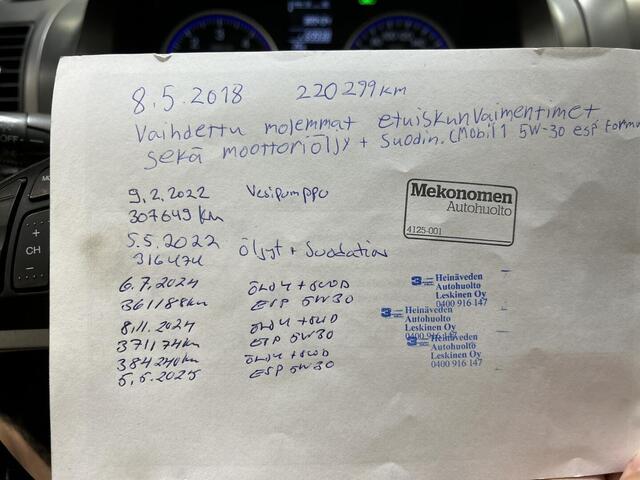 8.5.2018 220299km
Vaihdettu molemmat etuiskunvaimentimet
sekä moottoriöljy + suodin. (Mobil 1 5W-30 esp formu
9.2.2022 Vesipumppu
307649 km
Mekonomen
Autohuolto
4125-001
5.5.2022 Öljyt + Suodatin
316474
6.7.2024 ÖLJY + SUOD
361188km ESP 5W30
Heinäveden
Autohuolto
Leskinen Oy
0400 916 147
8.11.2024 ÖLJY + SUOD
371174km ESP 5W30
Heinäveden
Autohuolto
Leskinen Oy
0400 916 147
384240km ÖLJY + SUOD
5.5.2025 ESP 5W30
Heinäveden
Autohuolto
Leskinen Oy
0400 916 147
+
CH
-